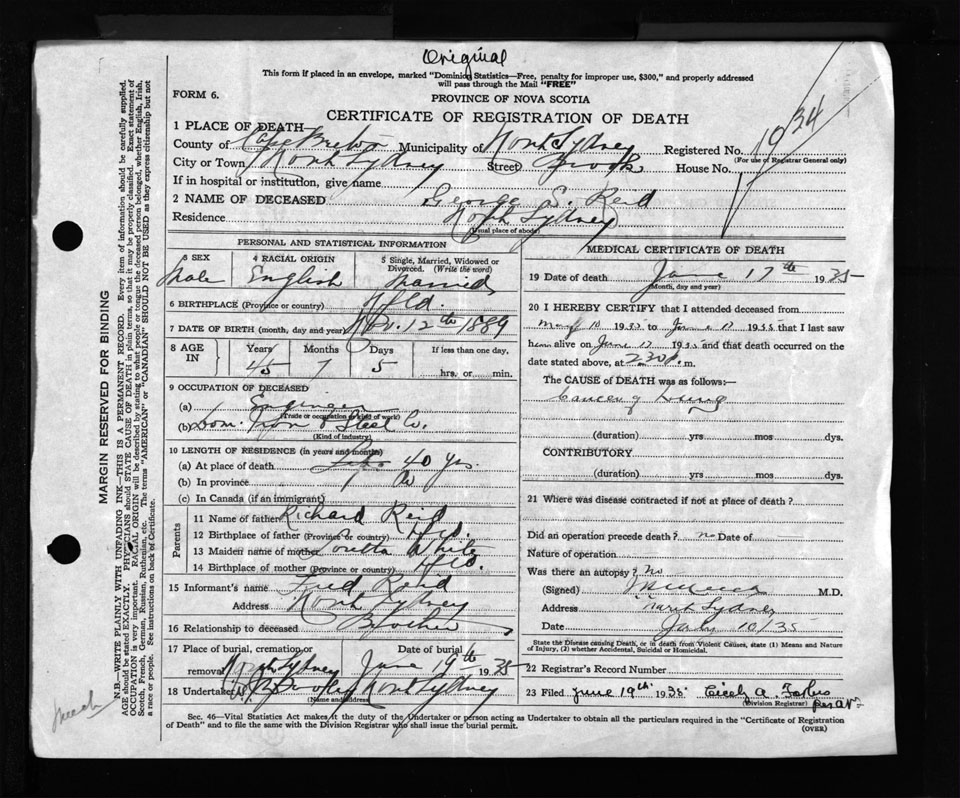 Original
This form if placed in an envelope, marked "Dominion Statistics—Free, penalty for improper use, $300," and properly addressed
will pass through the Mail "FREE"
FORM 6.
PROVINCE OF NOVA SCOTIA
CERTIFICATE OF REGISTRATION OF DEATH
1 PLACE OF DEATH—
County of Cape Breton Municipality of North Sydney Registered No. 1934
(For use of Registrar General only)
City or Town North Sydney Street Brook House No.
If in hospital or institution, give name
2 NAME OF DECEASED George S. Reid
Residence North Sydney
(Usual place of abode)
PERSONAL AND STATISTICAL INFORMATION
3 SEX 4 RACIAL ORIGIN 5 Single, Married, Widowed or
Divorced. (Write the word)
Male English Married
6 BIRTHPLACE (Province or country) Nfld.
7 DATE OF BIRTH (month, day and year) Nov. 12th 1889
8 AGE IN Years Months Days If less than one day,
45 7 5 hrs. or min.
9 OCCUPATION OF DECEASED
(a) Engineer
(Trade or occupation or kind of work)
(b) Dom. Iron & Steel Co.
(Kind of industry)
10 LENGTH OF RESIDENCE (in years and months)
(a) At place of death 40 yrs.
(b) In province Do
(c) In Canada (if an immigrant)
Parents
11 Name of father Richard Reid
12 Birthplace of father (Province or country) Nfld.
13 Maiden name of mother White
14 Birthplace of mother (Province or country) Nfld.
15 Informant's name Fred Reid
Address North Sydney
16 Relationship to deceased Brother
17 Place of burial, cremation or Date of burial
removal North Sydney June 19th 1935
18 Undertaker North Sydney
(Name and address)
MEDICAL CERTIFICATE OF DEATH
19 Date of death June 17th 1935
(Month, day and year)
20 I HEREBY CERTIFY that I attended deceased from
May 10 1935 to June 17 1935 that I last saw
him alive on June 17 1935 and that death occurred on the
date stated above, at 2.30 P.m.
The CAUSE of DEATH was as follows:—
Cancer of Lung
(duration) yrs mos dys.
CONTRIBUTORY
(duration) yrs mos dys.
21 Where was disease contracted if not at place of death?
Did an operation precede death? no Date of
Nature of operation
Was there an autopsy? No
(Signed) M.D.
Address North Sydney
Date July 10/35
State the Disease causing Death, or in death from Violent Causes, state (1) Means and
Nature of Injury, (2) whether Accidental, Suicidal or Homicidal.
22 Registrar's Record Number
23 Filed June 19th 1935 Cicely A. Forbes
(Division Registrar) per
Sec. 46—Vital Statistics Act makes it the duty of the Undertaker or person acting as Undertaker to obtain all the particulars required in the "Certificate of Registration
of Death" and to file the same with the Division Registrar who shall issue the burial permit.
(OVER)
MARGIN RESERVED FOR BINDING
N.B.—WRITE PLAINLY WITH UNFADING INK—THIS IS A PERMANENT RECORD. Every item of information should be carefully supplied.
AGE should be stated EXACTLY. PHYSICIANS should STATE CAUSE OF DEATH in plain terms, so that it may be properly classified. Exact statement of
OCCUPATION is very important. RACIAL ORIGIN will be described by stating to what people or tongue the deceased person belonged, whether English, Irish,
Scotch, French, German, Russian, Ruthenian, etc. The terms "AMERICAN" or "CANADIAN" SHOULD NOT BE USED as they express citizenship but not
a race or people. See instructions on back of Certificate.